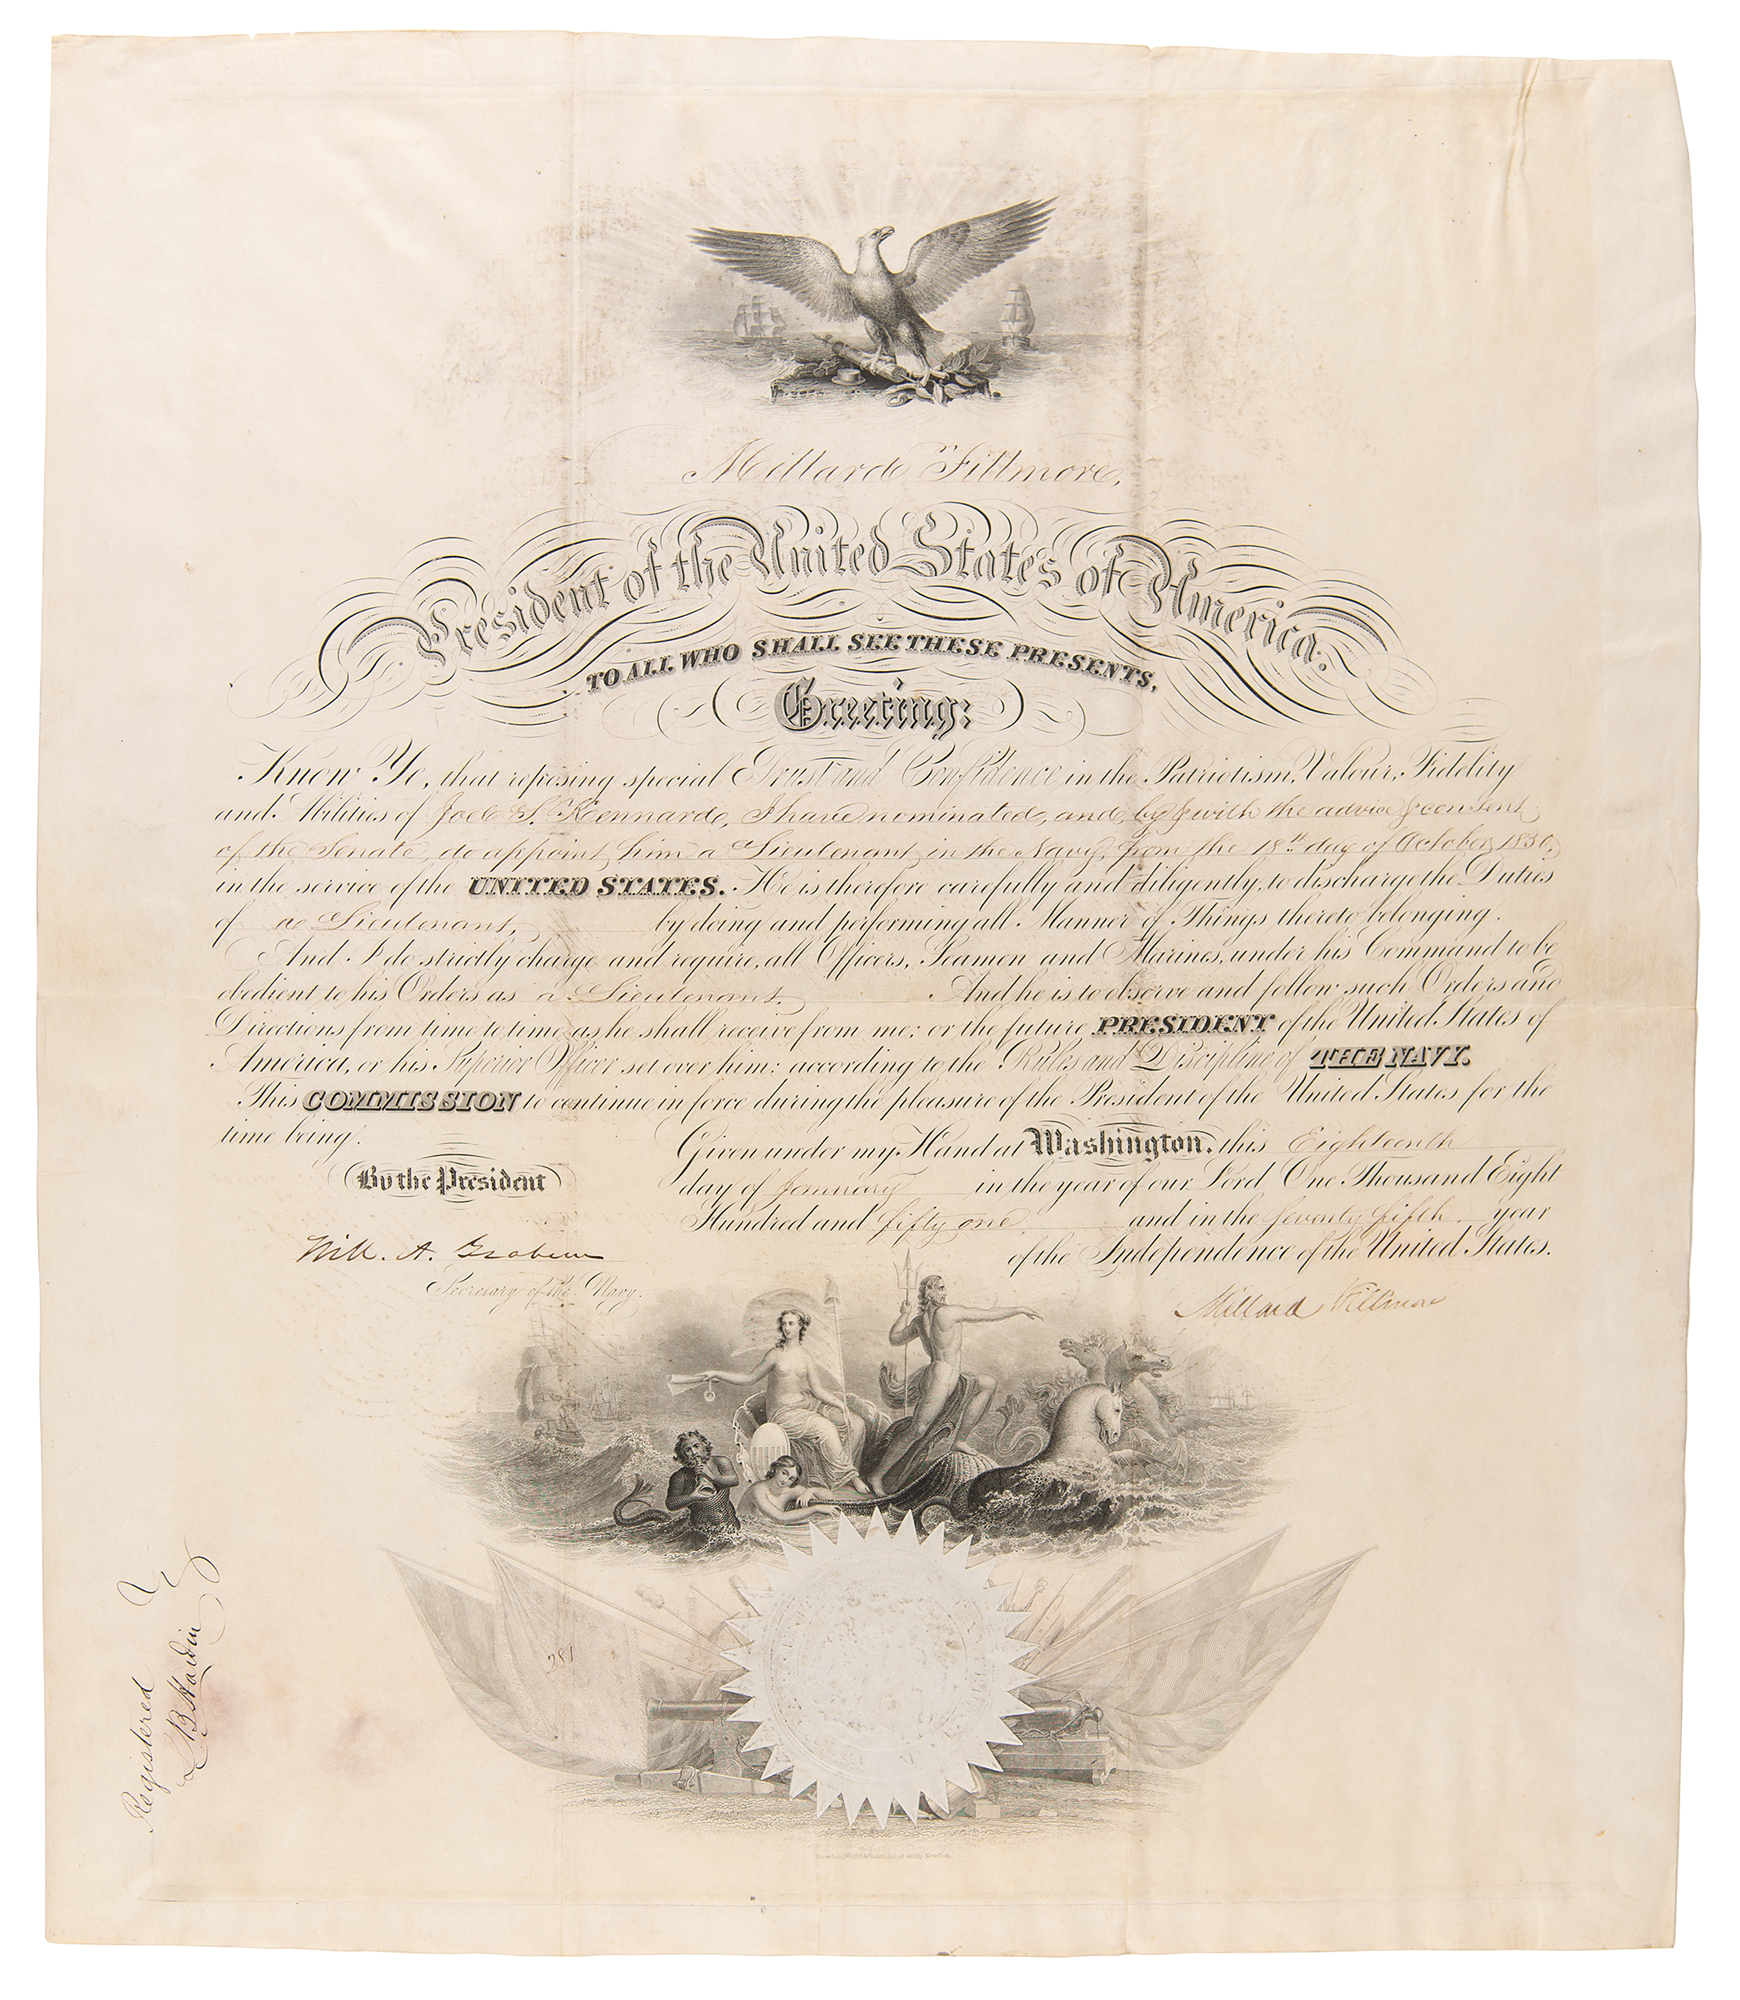 Millard Fillmore,
President of the United States of America.
TO ALL WHO SHALL SEE THESE PRESENTS,
Greeting:
Know Ye, that reposing special Trust and Confidence in the Patriotism, Valour, Fidelity
and Abilities of Joel S. Kennard, I have nominated, and, by & with the advice & consent
of the Senate, do appoint him a Lieutenant in the Navy, from the 18th day of October, 1850,
in the service of the UNITED STATES. He is therefore carefully and diligently, to discharge the Duties
of a Lieutenant, by doing and performing all Manner of Things thereto belonging.
And I do strictly charge and require, all Officers, Seamen and Marines, under his Command to be
obedient to his Orders as a Lieutenant. And he is to observe and follow such Orders and
Directions from time to time as he shall receive from me; or the future PRESIDENT of the United States of
America, or his Superior Officer set over him: according to the Rules and Discipline of THE NAVY.
This COMMISSION to continue in force during the pleasure of the President of the United States for the
time being.
Given under my Hand at Washington, this Eighteenth
By the President
day of January in the year of our Lord One Thousand Eight
Hundred and fifty one, and in the seventy fifth year
of the Independence of the United States.
Will. A. Graham
Secretary of the Navy.
Millard Fillmore
281
Registered